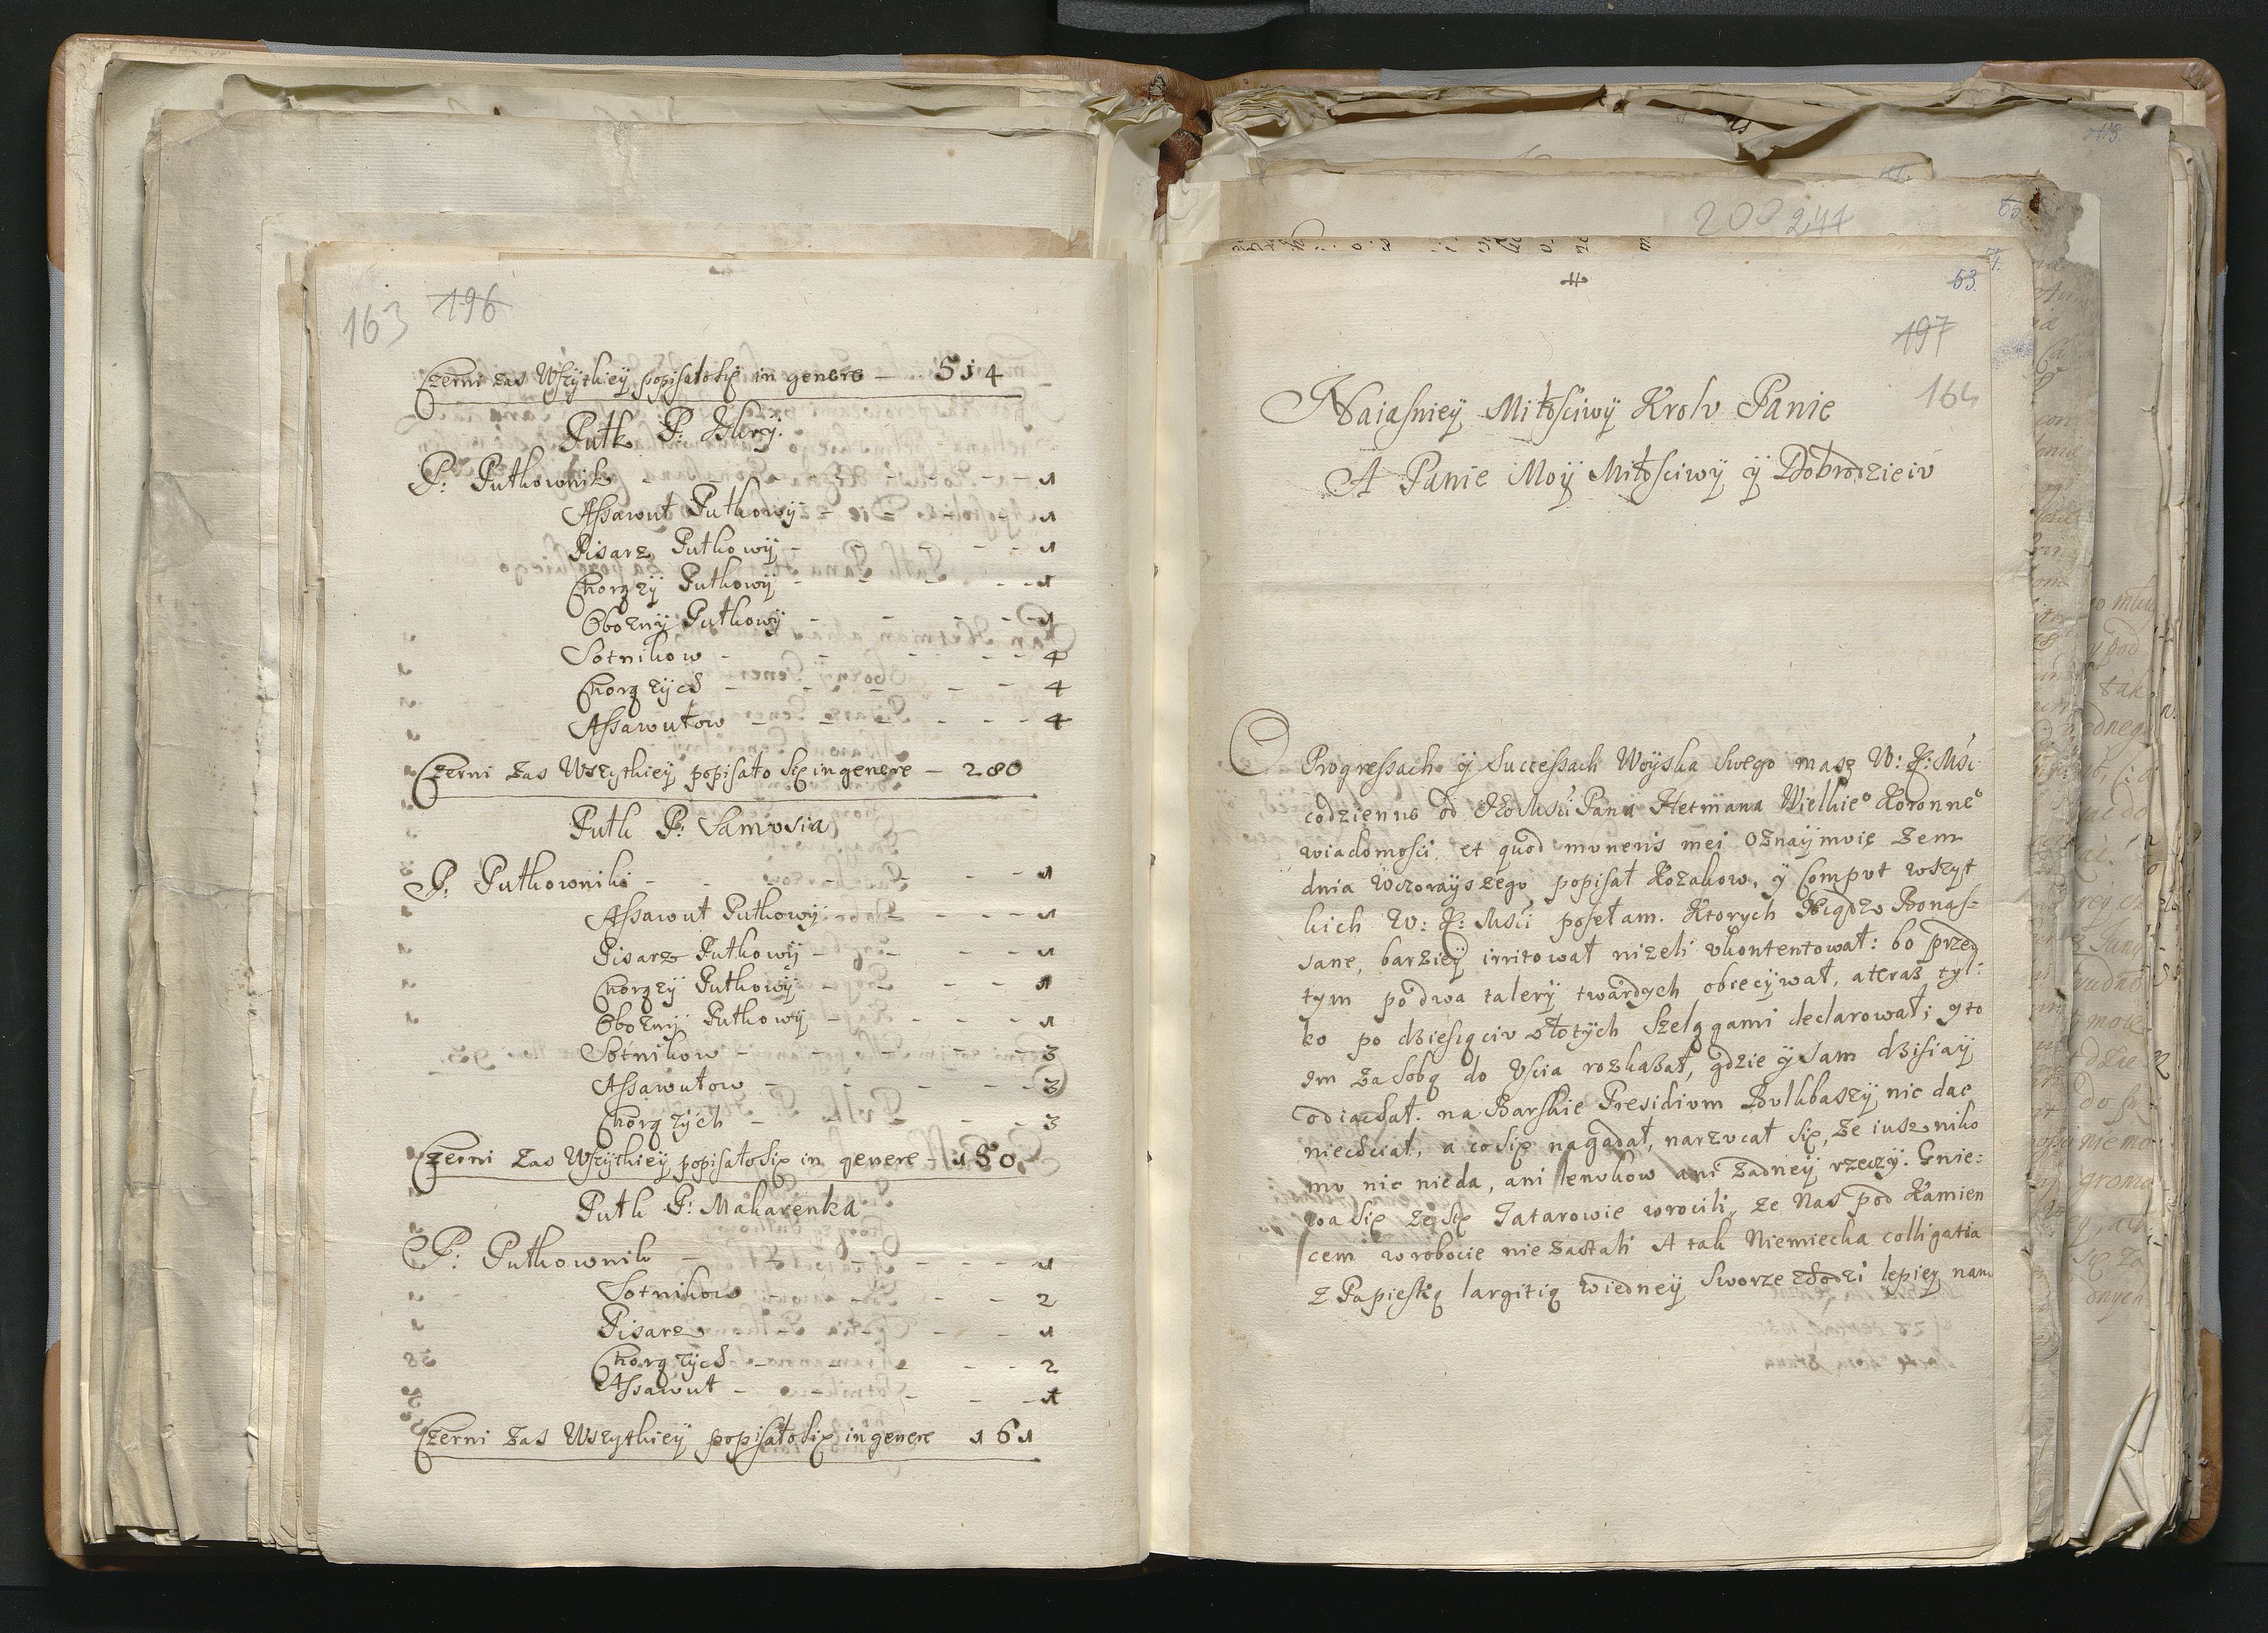 163 196
Czerni zas Wszytkiey popisało się in genere — 514
Pułk P:
P: Pułkownik - - - - - 1
Assawuł Pułkowÿ - - - - 1
Pisarz Pułkowÿ - - - - 1
Chorązÿ Pułkowÿ - - - - 1
Oboznÿ Pułkowÿ - - - - 1
Sotnikow - - - - - 4
Chorązÿch - - - - - 4
Assawułow - - - - - 4
Czerni zas Wszytkiey popisało się in genere — 280
Pułk P: Samusia
P: Pułkownik - - - - - 1
Assawuł Pułkowÿ - - - - 1
Pisarz Pułkowÿ - - - - 1
Chorązÿ Pułkowÿ - - - - 1
Oboznÿ Pułkowÿ - - - - 1
Sotnikow - - - - - 3
Assawułow - - - - - 3
Chorązÿch - - - - - 3
Czerni zas Wszytkieÿ popisało się in genere - 150
Pułk P: Makarenka
P: Pułkownik - - - - - 1
Sotnikow - - - - - 2
Pisarz - - - - - 1
Chorązÿch - - - - - 2
Assawuł - - - - - 1
Czerni zas Wszytkieÿ popisało się in genere 161
200 244
53.
197
164
Naiasnieÿ Miłosciwÿ Krolu Panie
A Panie Moÿ Miłosciwÿ ÿ Dobrodzieiu
O Progressach ÿ Successach Woÿska Swego masz W: K: Msc
codzienno od Pana Hetmana Wielkie° Koronne°
wiadomosci, et quod muneris mei oznaÿmuię zem
dnia wczoraÿszego popisał Kozakow, ÿ Comput wszyt
kich W: K: Msci posełam. Ktorych Xiądz Bonas=
sane, barzieÿ irritował nizeli ukontentował: bo przed
tym po dwa talerÿ twardych obiecÿwał, a teraz tyl:
ko po dziesiąciu złotÿch szelągami declarował; y to
im za sobą do Uscia rozkazał, gdzie ÿ sam dzisiaÿ
odiachał. na Barskie Presidium Bułkbaszÿ nic dac
niechciał, a co się nagadał, narzucał się, ze iusz niko
mu nic nieda, ani lenukow ani zadneÿ rzeczÿ. Gnie:
wa się ze się Tatarowie wrocili, ze Nas pod Kamien
cem w robocie nie zastali A tak Niemiecka colligatia
z Papieską largitią wiedneÿ sworze chodzi lepieÿ nam